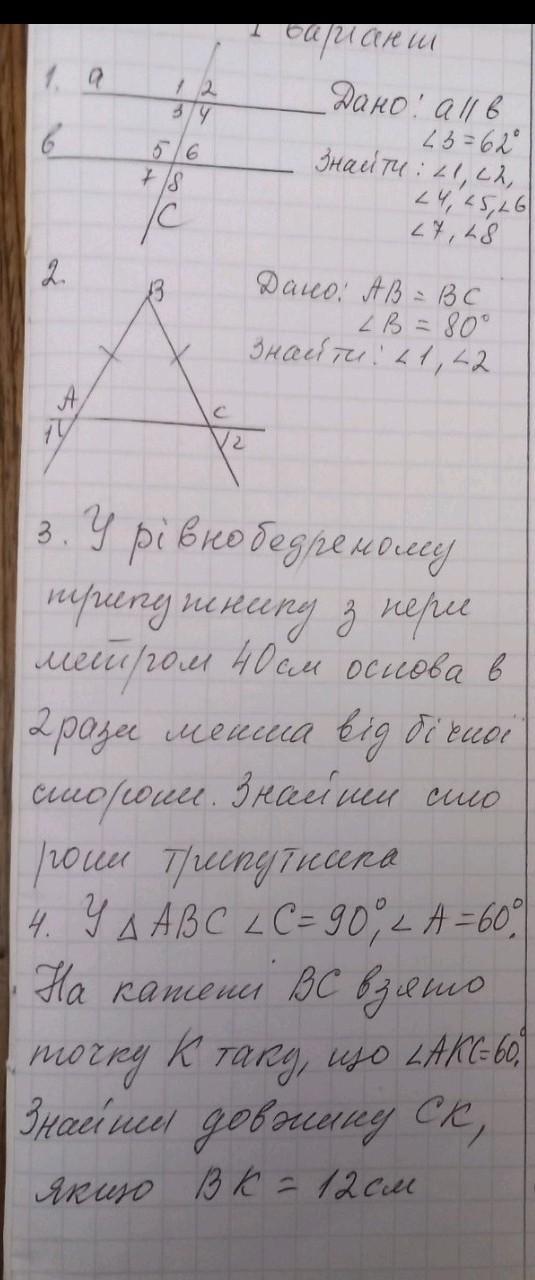 I варіант
1. a
1 2
3 4
в
5 6
7 8
C
Дано: a || в
∠3 = 62°
Знайти: ∠1, ∠2,
∠4, ∠5, ∠6
∠7, ∠8
2.
B
A
C
1
2
Дано: AB = BC
∠B = 80°
Знайти: ∠1, ∠2
3. У рівнобедреному
трикутнику з пери
метром 40см основа в
2 рази менша від бічної
сторони. Знайти сто
рони трикутника
4. У △ABC ∠C = 90°, ∠A = 60°.
На катеті BC взято
точку K таку, що ∠AKC = 60°.
Знайти довжину CK,
якщо BK = 12см